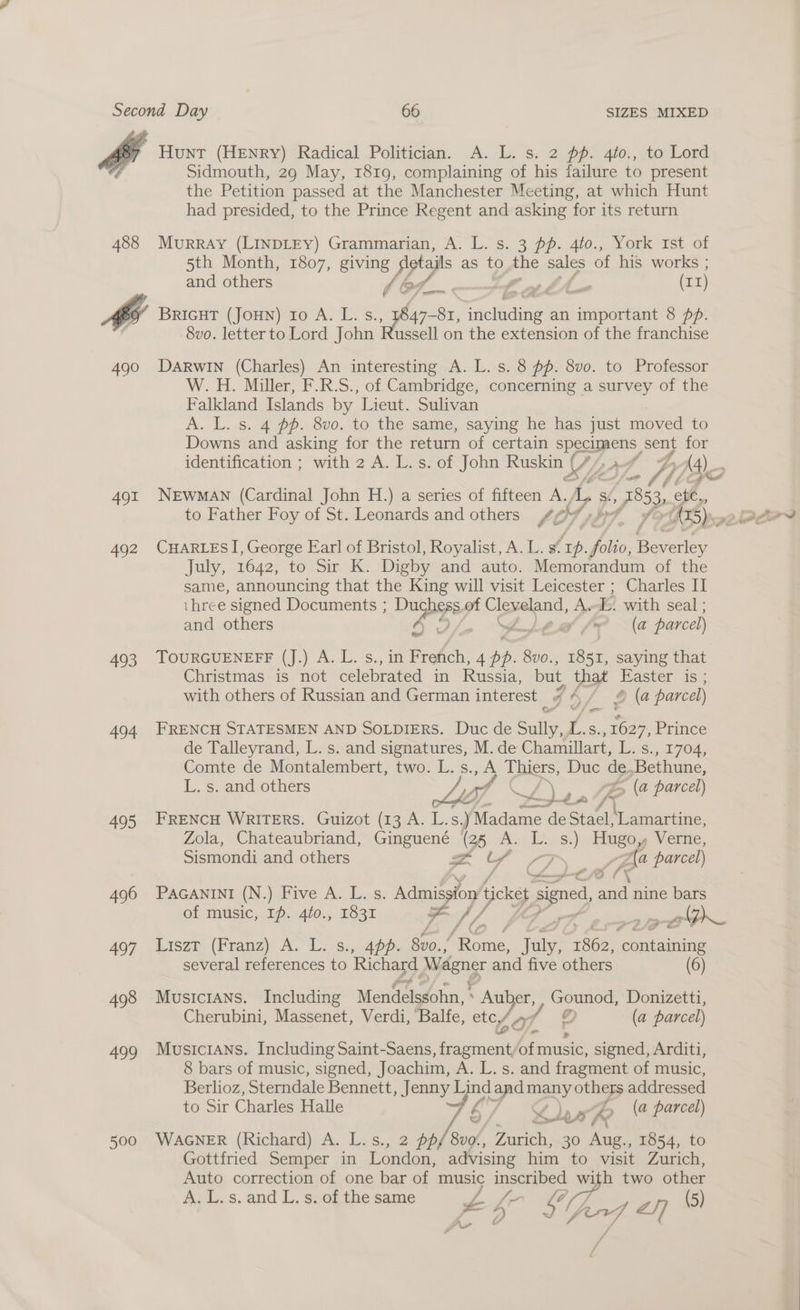 Second Day 66 SIZES MIXED
487 HUNT (HENRY) Radical Politician. A. L. s. 2 pp. 4to., to Lord
Sidmouth, 29 May, 1819, complaining of his failure to present
the Petition passed at the Manchester Meeting, at which Hunt
had presided, to the Prince Regent and asking for its return
488 MURRAY (LINDLEY) Grammarian, A. L. s. 3 pp. 4to., York 1st of
5th Month, 1807, giving details as to the sales of his works ;
and others (11)
489 BRIGHT (JOHN) 10 A. L. s., 1847–81, including an important 8 pp.
8vo. letter to Lord John Russell on the extension of the franchise
490 DARWIN (Charles) An interesting A. L. s. 8 pp. 8vo. to Professor
W. H. Miller, F.R.S., of Cambridge, concerning a survey of the
Falkland Islands by Lieut. Sulivan
A. L. s. 4 pp. 8vo. to the same, saying he has just moved to
Downs and asking for the return of certain specimens sent for
identification ; with 2 A. L. s. of John Ruskin (4)
491 NEWMAN (Cardinal John H.) a series of fifteen A. L. s., 1853, etc.,
to Father Foy of St. Leonards and others (15)
492 CHARLES I, George Earl of Bristol, Royalist, A. L. s. 1p. folio, Beverley
July, 1642, to Sir K. Digby and auto. Memorandum of the
same, announcing that the King will visit Leicester ; Charles II
three signed Documents ; Duchess of Cleveland, A. L. with seal ;
and others (a parcel)
493 TOURGUENEFF (J.) A. L. s., in French, 4 pp. 8vo., 1851, saying that
Christmas is not celebrated in Russia, but that Easter is ;
with others of Russian and German interest (a parcel)
494 FRENCH STATESMEN AND SOLDIERS. Duc de Sully, L. s., 1627, Prince
de Talleyrand, L. s. and signatures, M. de Chamillart, L. s., 1704,
Comte de Montalembert, two. L. s., A Thiers, Duc de Bethune,
L. s. and others (a parcel)
495 FRENCH WRITERS. Guizot (13 A. L.s.) Madame de Stael, Lamartine,
Zola, Chateaubriand, Ginguené (25 A. L. s.) Hugo, Verne,
Sismondi and others (a parcel)
496 PAGANINI (N.) Five A. L. s. Admission ticket signed, and nine bars
of music, 1p. 4to., 1831 (7)
497 LISZT (Franz) A. L. s., 4pp. 8vo., Rome, July, 1862, containing
several references to Richard Wagner and five others (6)
498 MUSICIANS. Including Mendelssohn, Auber, Gounod, Donizetti,
Cherubini, Massenet, Verdi, Balfe, etc. (a parcel)
499 MUSICIANS. Including Saint-Saens, fragment of music, signed, Arditi,
8 bars of music, signed, Joachim, A. L. s. and fragment of music,
Berlioz, Sterndale Bennett, Jenny Lind and many others addressed
to Sir Charles Halle (a parcel)
500 WAGNER (Richard) A. L. s., 2 pp. 8vo., Zurich, 30 Aug., 1854, to
Gottfried Semper in London, advising him to visit Zurich,
Auto correction of one bar of music inscribed with two other
A. L. s. and L. s. of the same (5)